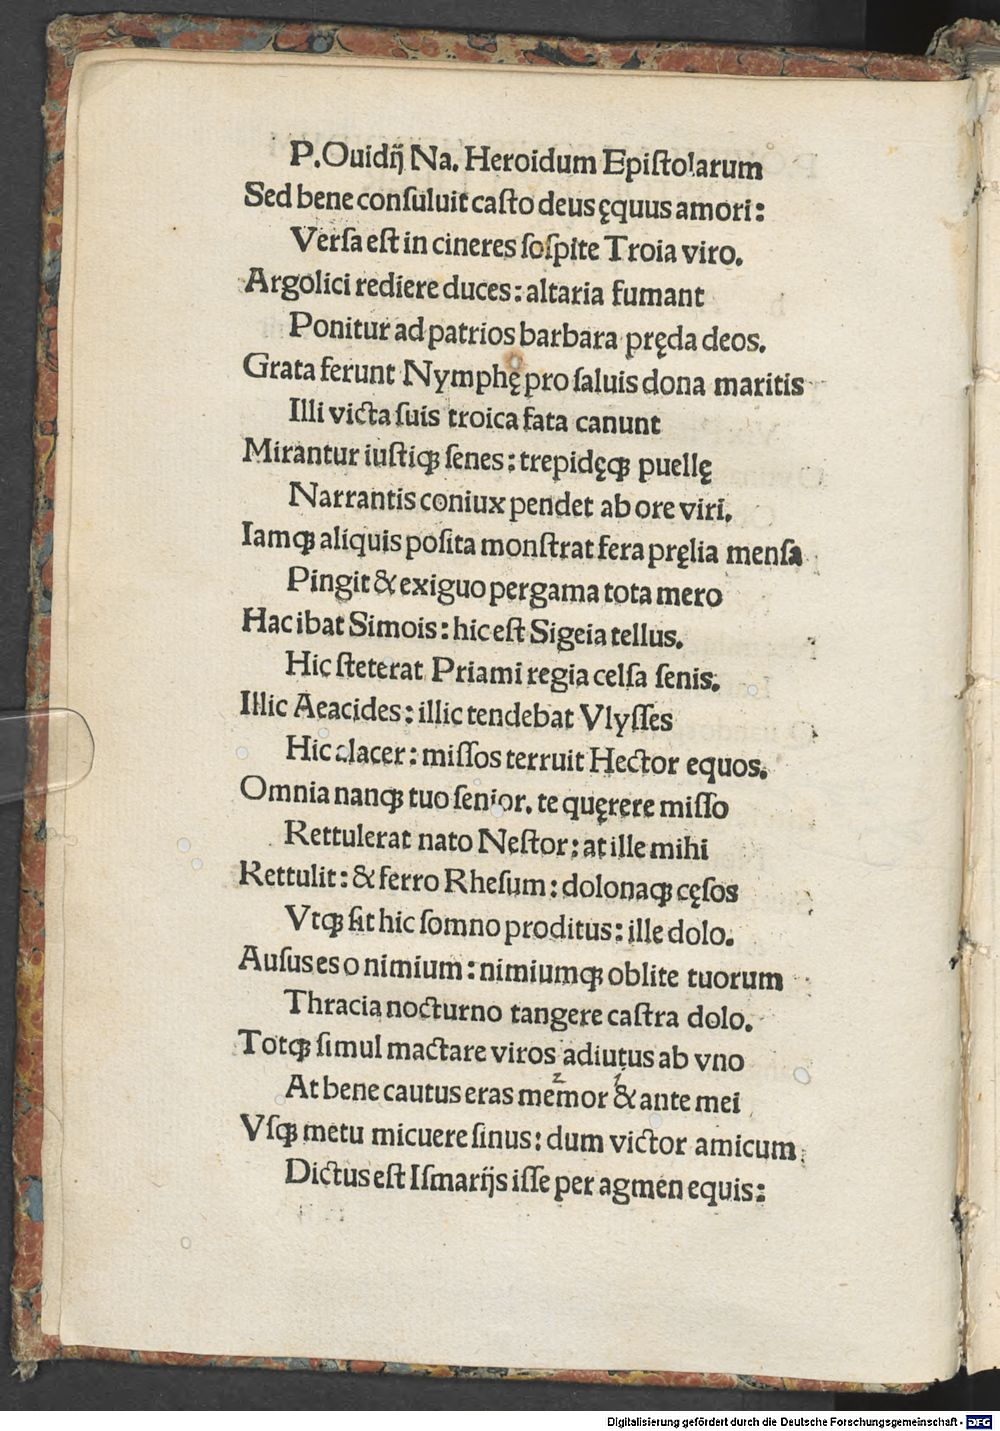 P.Ouidĳ Na. Heroidum Epiſtolarum
Sed bene conſuluit caſto deus ęquus amori:
Verſa eſt in cineres ſoſpite Troia viro.
Argolici rediere duces: altaria fumant
Ponitur ad patrios barbara pręda deos.
Grata ferunt Nymphę pro ſaluis dona maritis
Illi victa ſuis troica fata canunt
Mirantur iuſtiqꝫ ſenes: trepidęqꝫ puellę
Narrantis coniux pendet ab ore viri.
Iamqꝫ aliquis poſita monſtrat fera pręlia menſa
Pingit & exiguo pergama tota mero
Hac ibat Simois: hic eſt Sigeia tellus.
Hic ſteterat Priami regia celſa ſenis.
Illic Aeacides: illic tendebat Vlyſſes
Hic alacer: miſſos terruit Hector equos.
Omnia nanqꝫ tuo ſenior. te quęrere miſſo
Rettulerat nato Neſtor: at ille mihi
Rettulit: & ferro Rheſum: dolonaqꝫ cęſos
Vtqꝫ ſit hic ſomno proditus: ille dolo.
Auſus es o nimium: nimiumqꝫ oblite tuorum
Thracia nocturno tangere caſtra dolo.
Totqꝫ ſimul mactare viros adiutus ab vno
At bene cautus eras memor & ante mei
Vſqꝫ metu micuere ſinus: dum victor amicum
Dictus eſt Iſmarĳs iſſe per agmen equis:
Digitalisierung gefördert durch die Deutsche Forschungsgemeinschaft - DFG